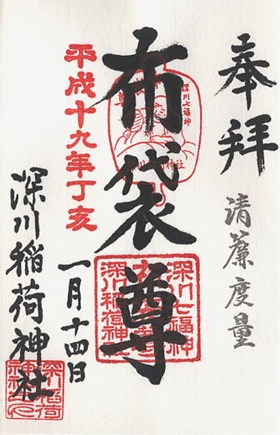 奉拝
清簾度量
深川七福神
布袋尊
深川七福神
深川稲荷神社
平成十九年丁亥
一月十四日
深川稲荷神社